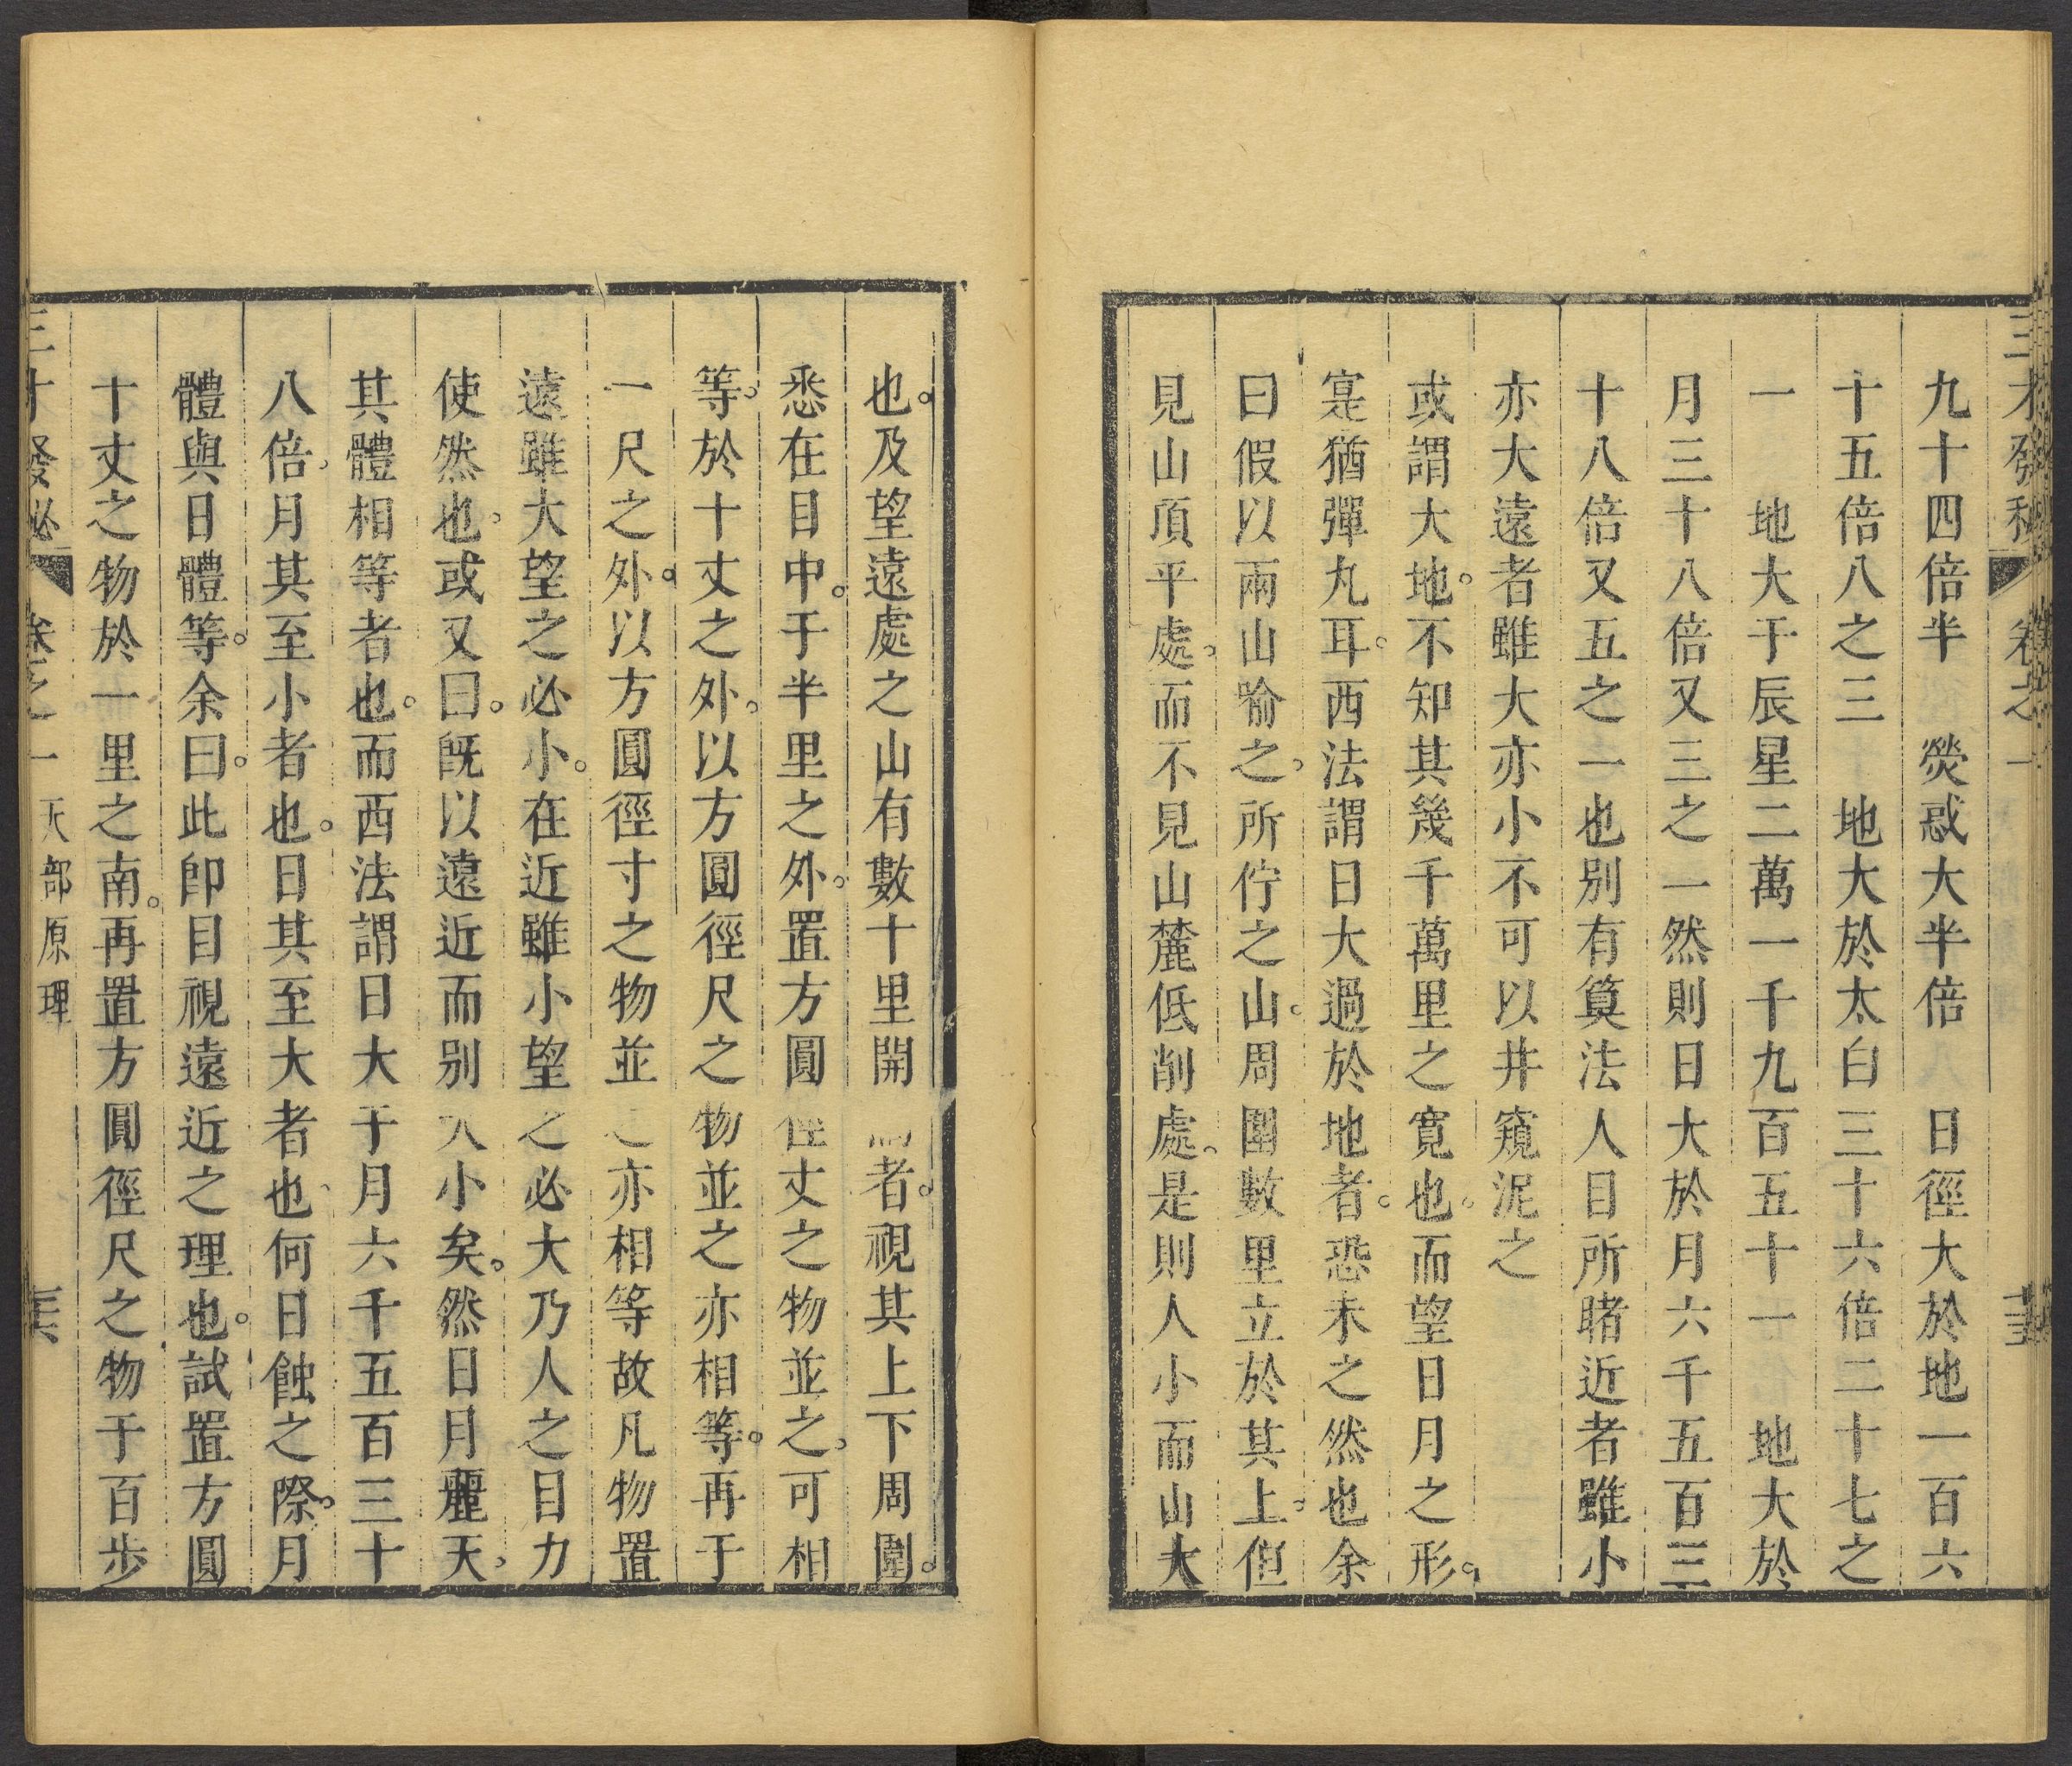 三才發秘 卷之一
九十四倍半 熒惑大半倍 日徑大於地一百六
十五倍八之三 地大於太白三十六倍二十七之
一 地大于辰星二萬一千九百五十一 地大於
月三十八倍又三之一然則日大於月六千五百三
十八倍又五之一也別有算法人目所睹近者雖小
亦大遠者雖大亦小不可以井窺泥之
或謂大地。不知其幾千萬里之寬也。而望日月之形。
寔猶彈丸耳。西法謂日大過於地者。恐未之然也余
曰假以兩山喻之。所佇之山。周圍數里立於其上。但
見山頂平處。而不見山麓低削處。是則人小而山大
也。及望遠處之山有數十里開者。視其上下周圍。
悉在目中。于半里之外。置方圓徑丈之物並之。可相
等。於十丈之外。以方圓徑尺之物並之亦相等。再于
一尺之外。以方圓徑寸之物並之亦相等故凡物置
遠雖大望之必小。在近雖小望之必大乃人之目力
使然也。或又曰。旣以遠近而別大小矣。然日月麗天。
其體相等者也。而西法謂日大于月六千五百三十
八倍。月其至小者也。日其至大者也。何日蝕之際。月
體與日體等。余曰。此卽目視遠近之理也。試置方圓
十丈之物於一里之南。再置方圓徑尺之物于百步
三才發秘 卷之一 天部原理 三六